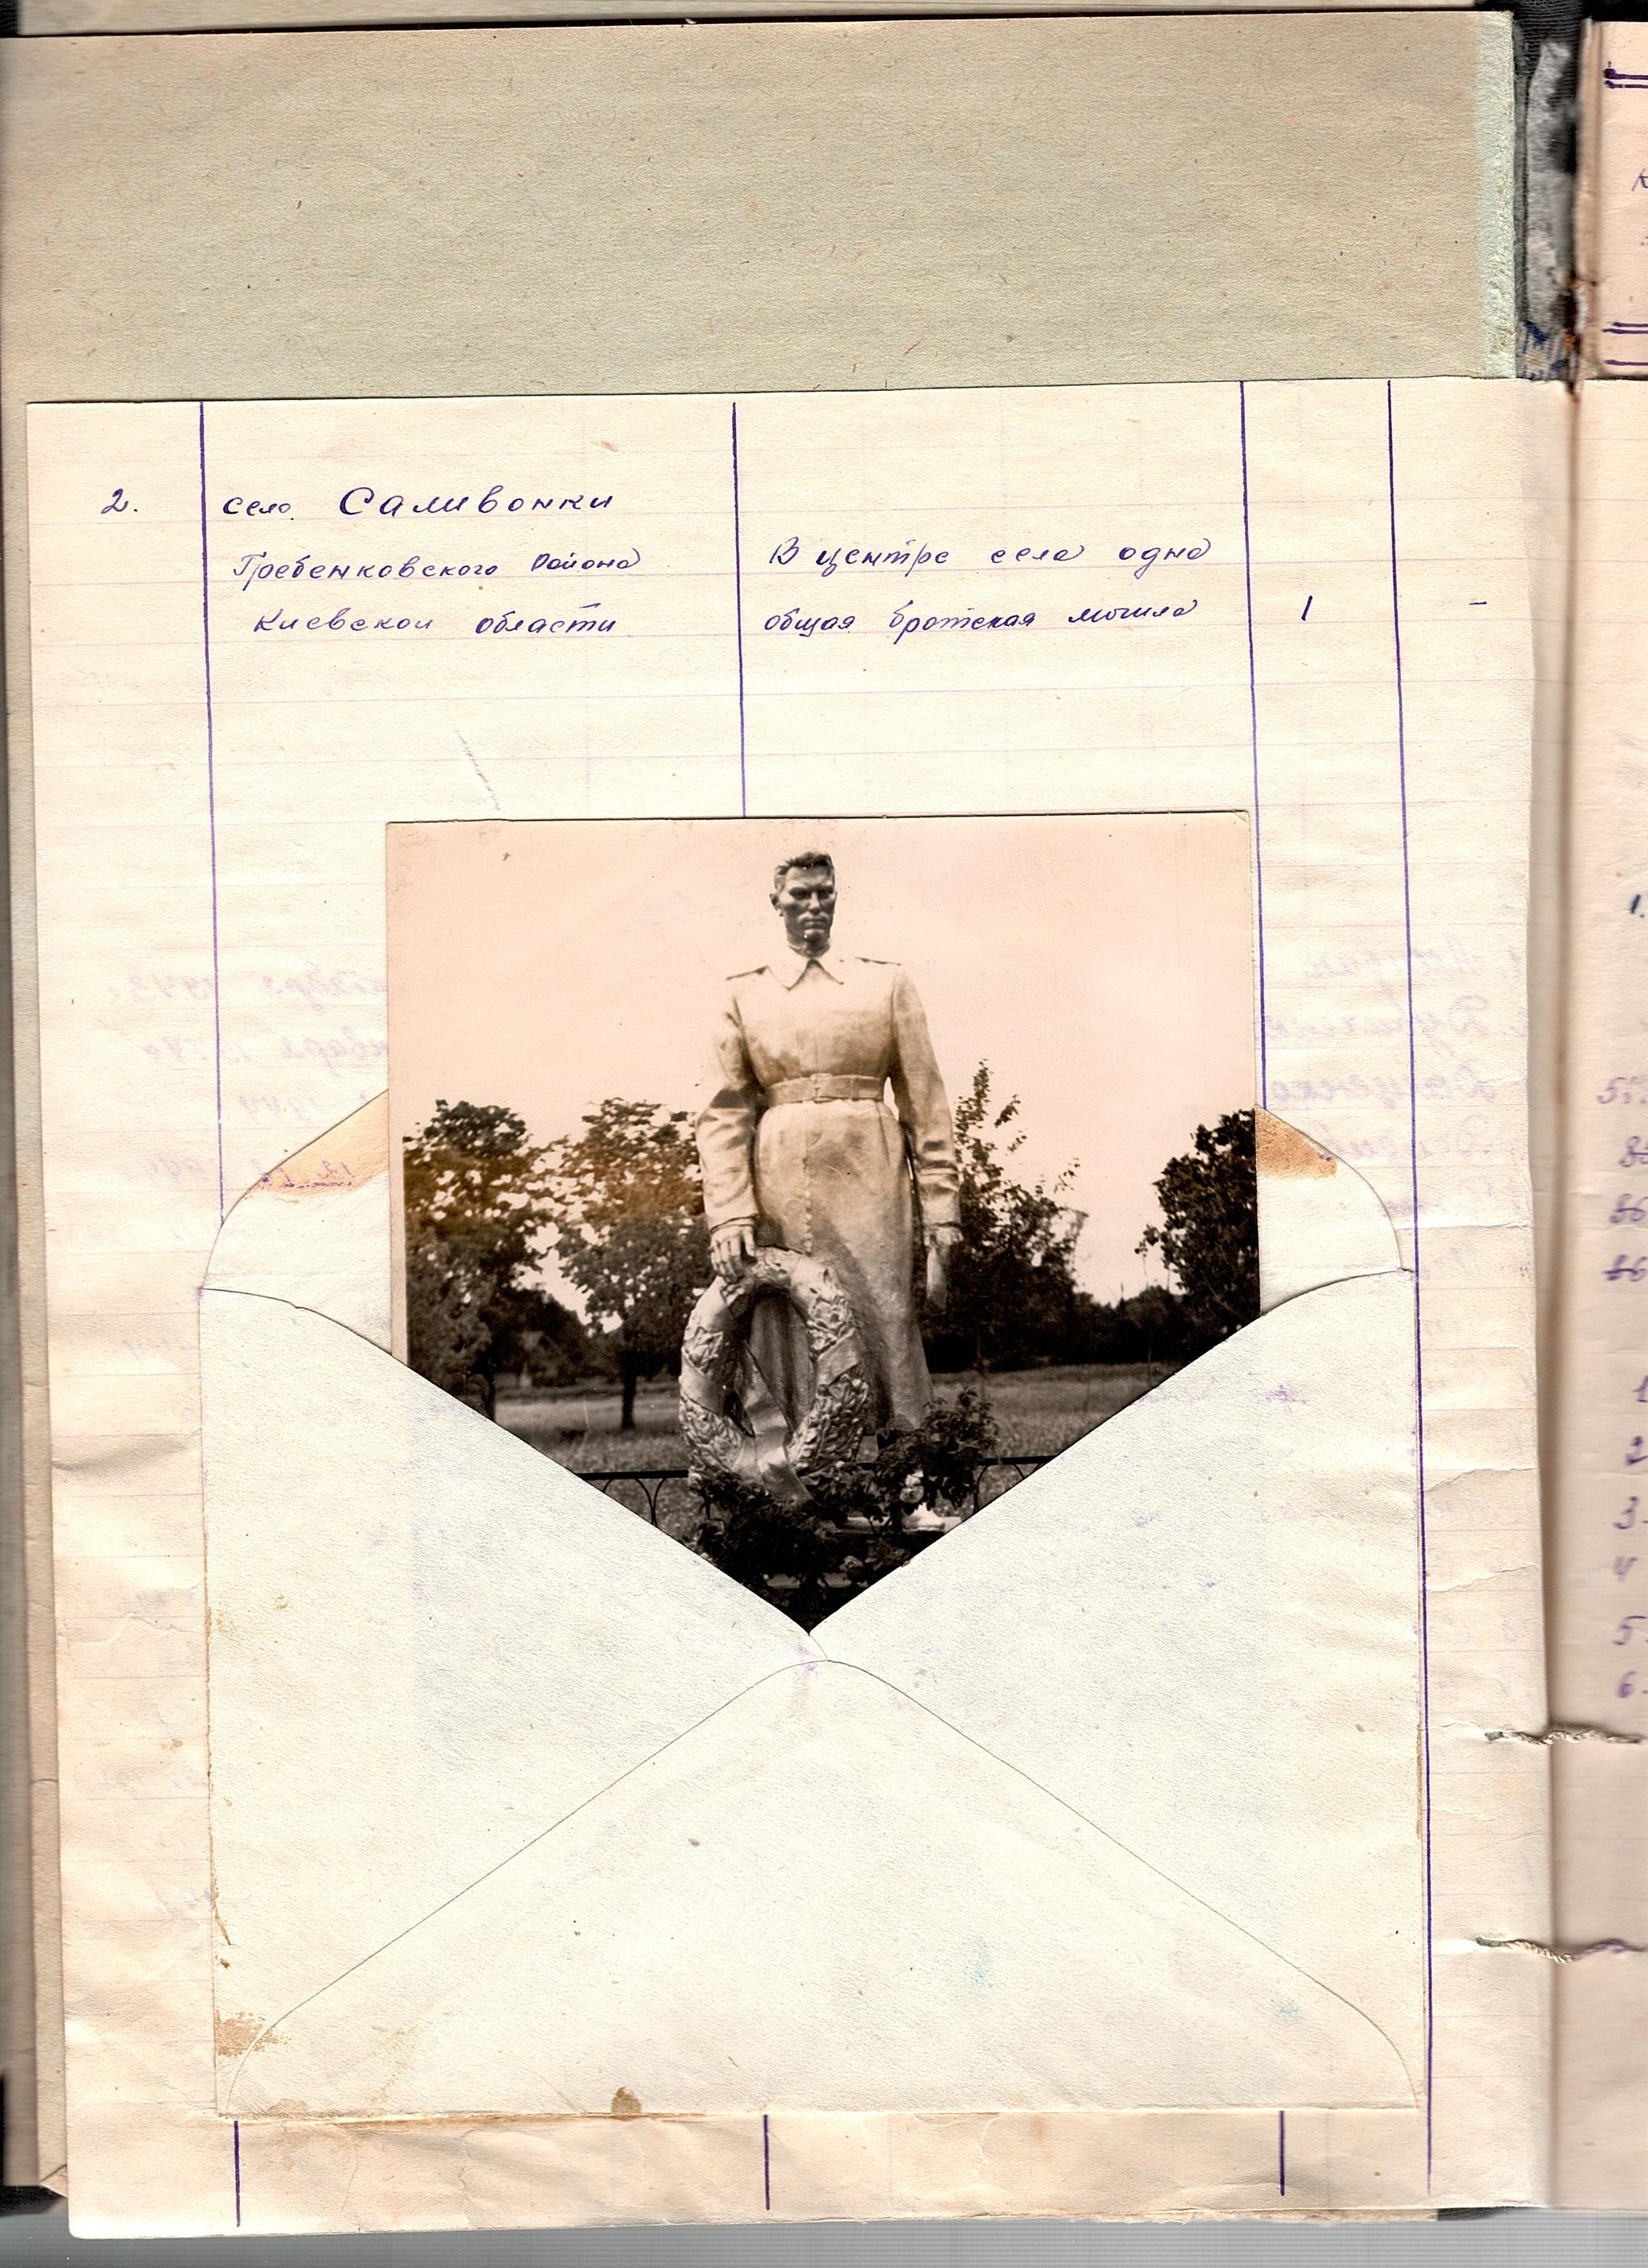 2.
село Саливонки
Гребенковского района
Киевской области
В центре села одна
общая братская могила
1
-
1.
1
2
3.
4
5.
6.